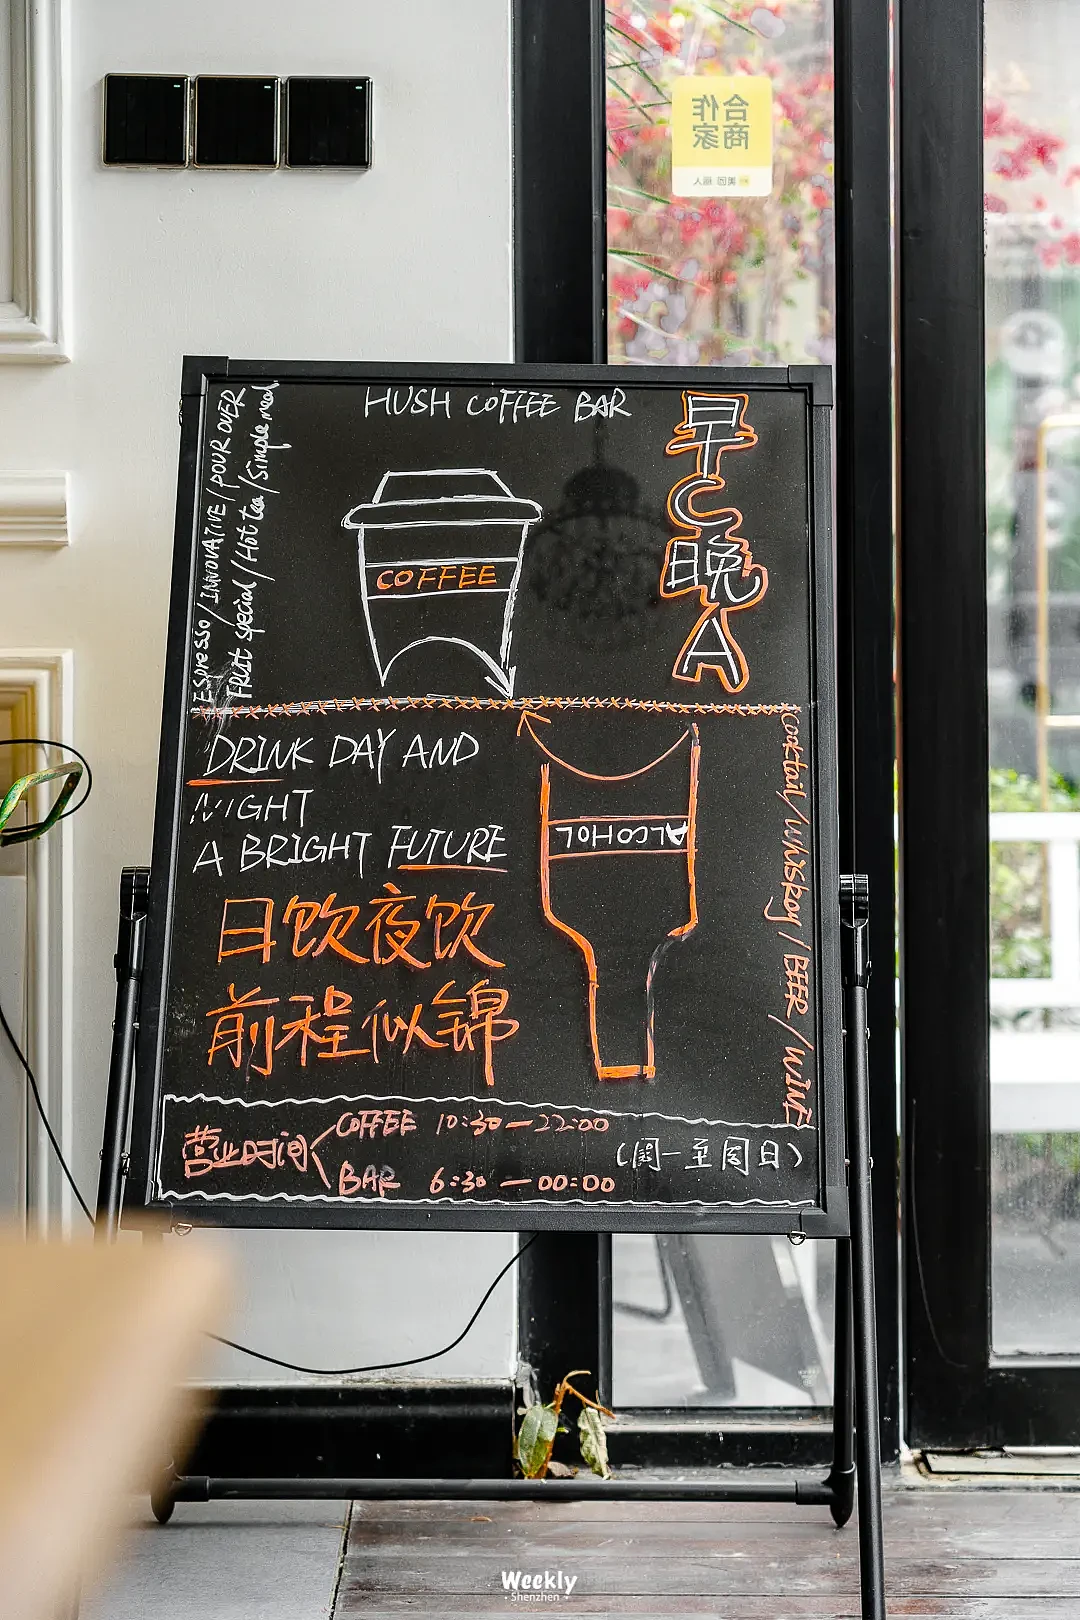 合作
商家
美团 丽人
HUSH COFFEE BAR
早C晚A
ESPresso/INNOVATIVE/POUR OVER
FRUIT special/Hot tea/Simple meal
COFFEE
DRINK DAY AND
NIGHT
A BRIGHT FUTURE
日饮夜饮
前程似锦
ALCOHOL
Cocktail/Whiskey/BEER/WINE
营业时间
COFFEE 10:30—22:00
BAR 6:30—00:00
(周一至周日)
Weekly
Shenzhen